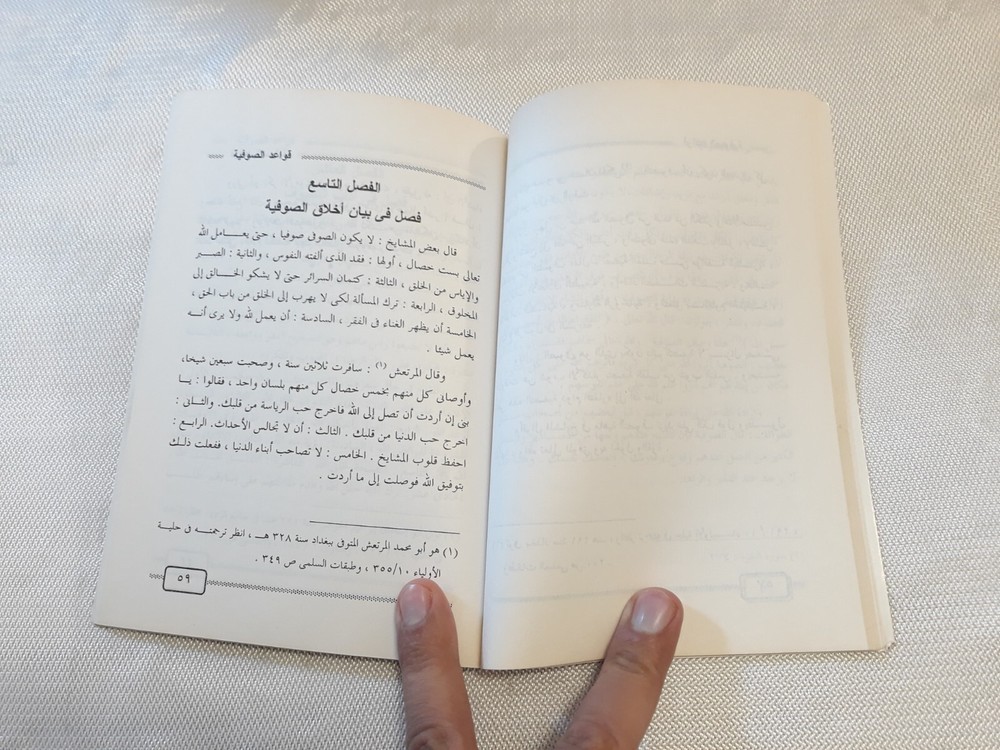 قواعد الصوفية
الفصل التاسع
فصل فى بيان أخلاق الصوفية
قال بعض المشايخ : لا يكون الصوفى صوفيا ، حتى يعـــامل الله
تعالى بست خصال ، أولها : فقد الذى ألفته النفوس ، والثانية : الصـبر
والإياس من الخلق ، الثالثة : كتمان السرائر حتى لا يشكو الخـــالق إلى
المخلوق ، الرابعة : ترك المسألة لكى لا يهرب إلى الخلق من باب الحق ،
الخامسة أن يظهر الغناء فى الفقر ، السادسة : أن يعمل لله ولا يرى أنـه
يعمل شيئا .
وقال المرتعش (١) : سافرت ثلاثين سنة ، وصحبت سبعين شيخا،
وأوصانى كل منهم بخمس خصال كل منهم بلسان واحد ، فقالوا : يــا
بنى إن أردت أن تصل إلى الله فاخرج حب الرياسة من قلبك. والثـانى :
اخرج حب الدنيا من قلبك . الثالث : أن لا تجالس الأحداث. الرابـع :
احفظ قلوب المشايخ . الخامس : لا تصاحب أبناء الدنيا ، ففعلت ذلـك
بتوفيق الله فوصلت إلى ما أردت .
(١) هو أبو محمد المرتعش المتوفى ببغداد سنة ٣٢٨ هــ ، انظر ترجمتــه فى حليـة
الأولياء ٣٥٥/١٠ ، وطبقات السلمى ص ٣٤٩ .
٥٩